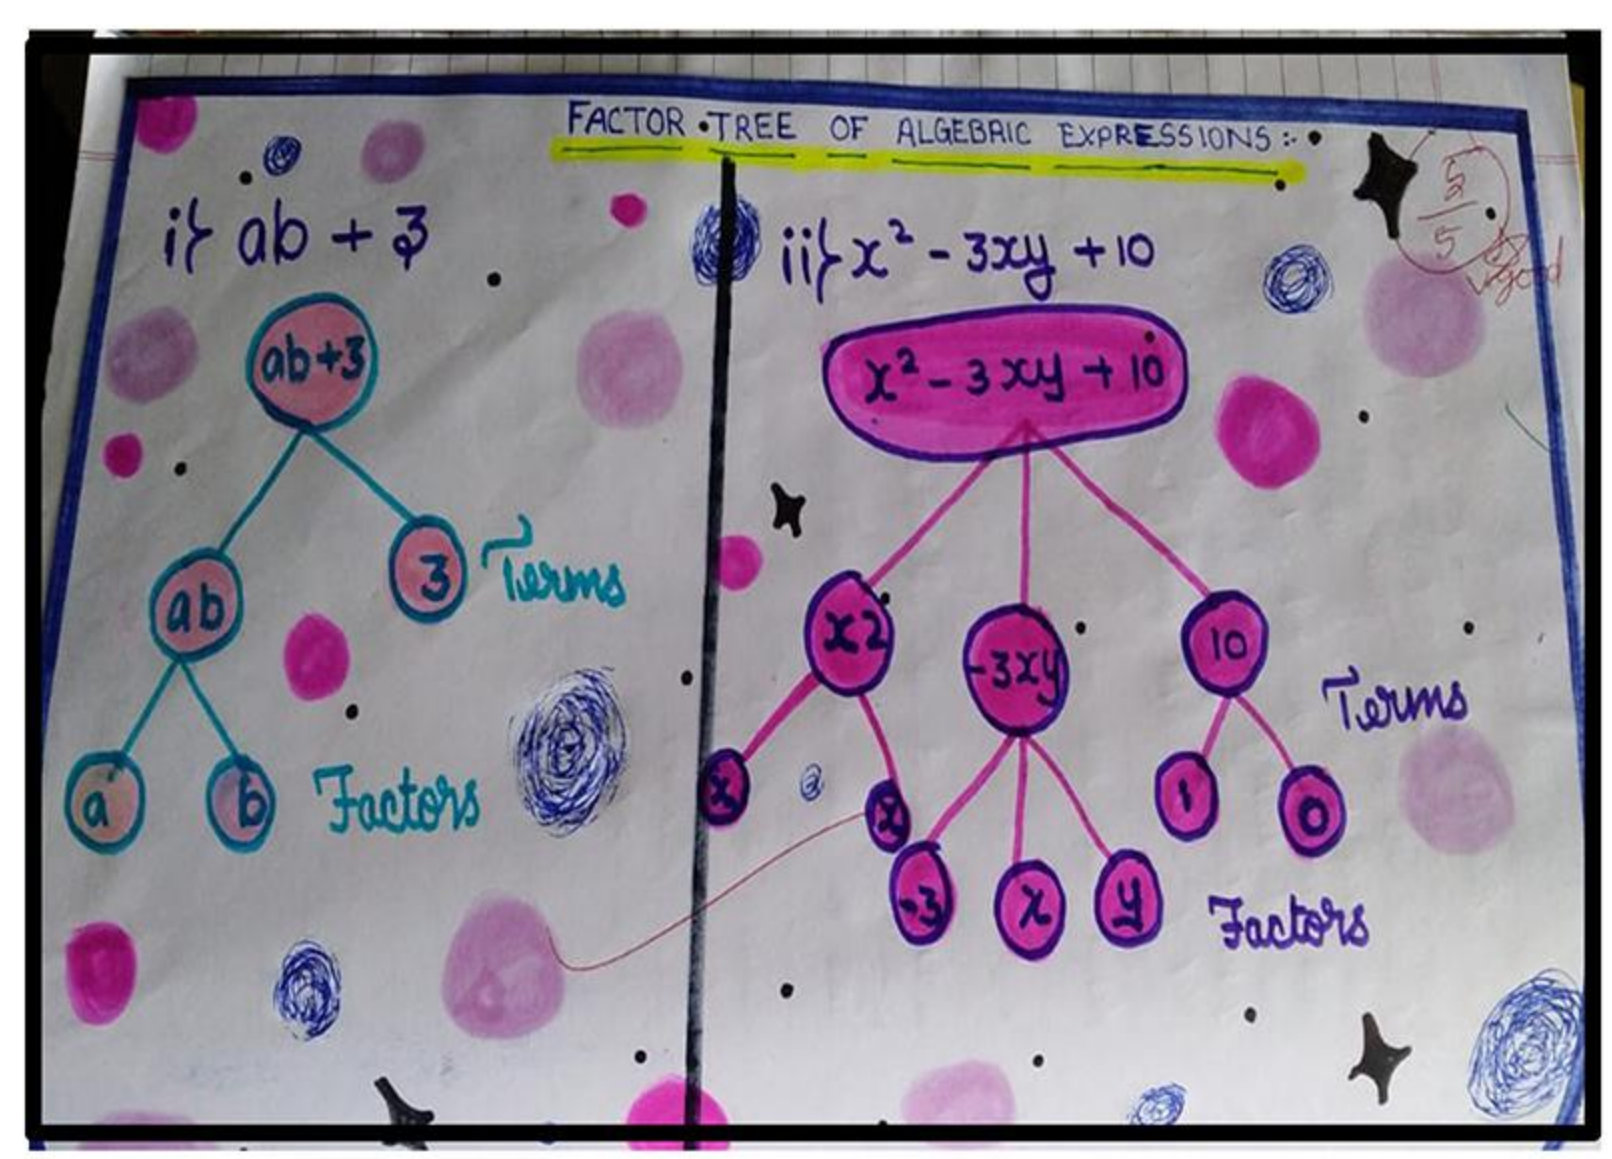 FACTOR TREE OF ALGEBRIC EXPRESSIONS:-
5/5
V.good
i} ab + 3
ab+3
ab
3
Terms
a
b
Factors
ii} x² - 3xy + 10
x² - 3xy + 10
x2
-3xy
10
Terms
x
x
-3
x
y
1
0
Factors